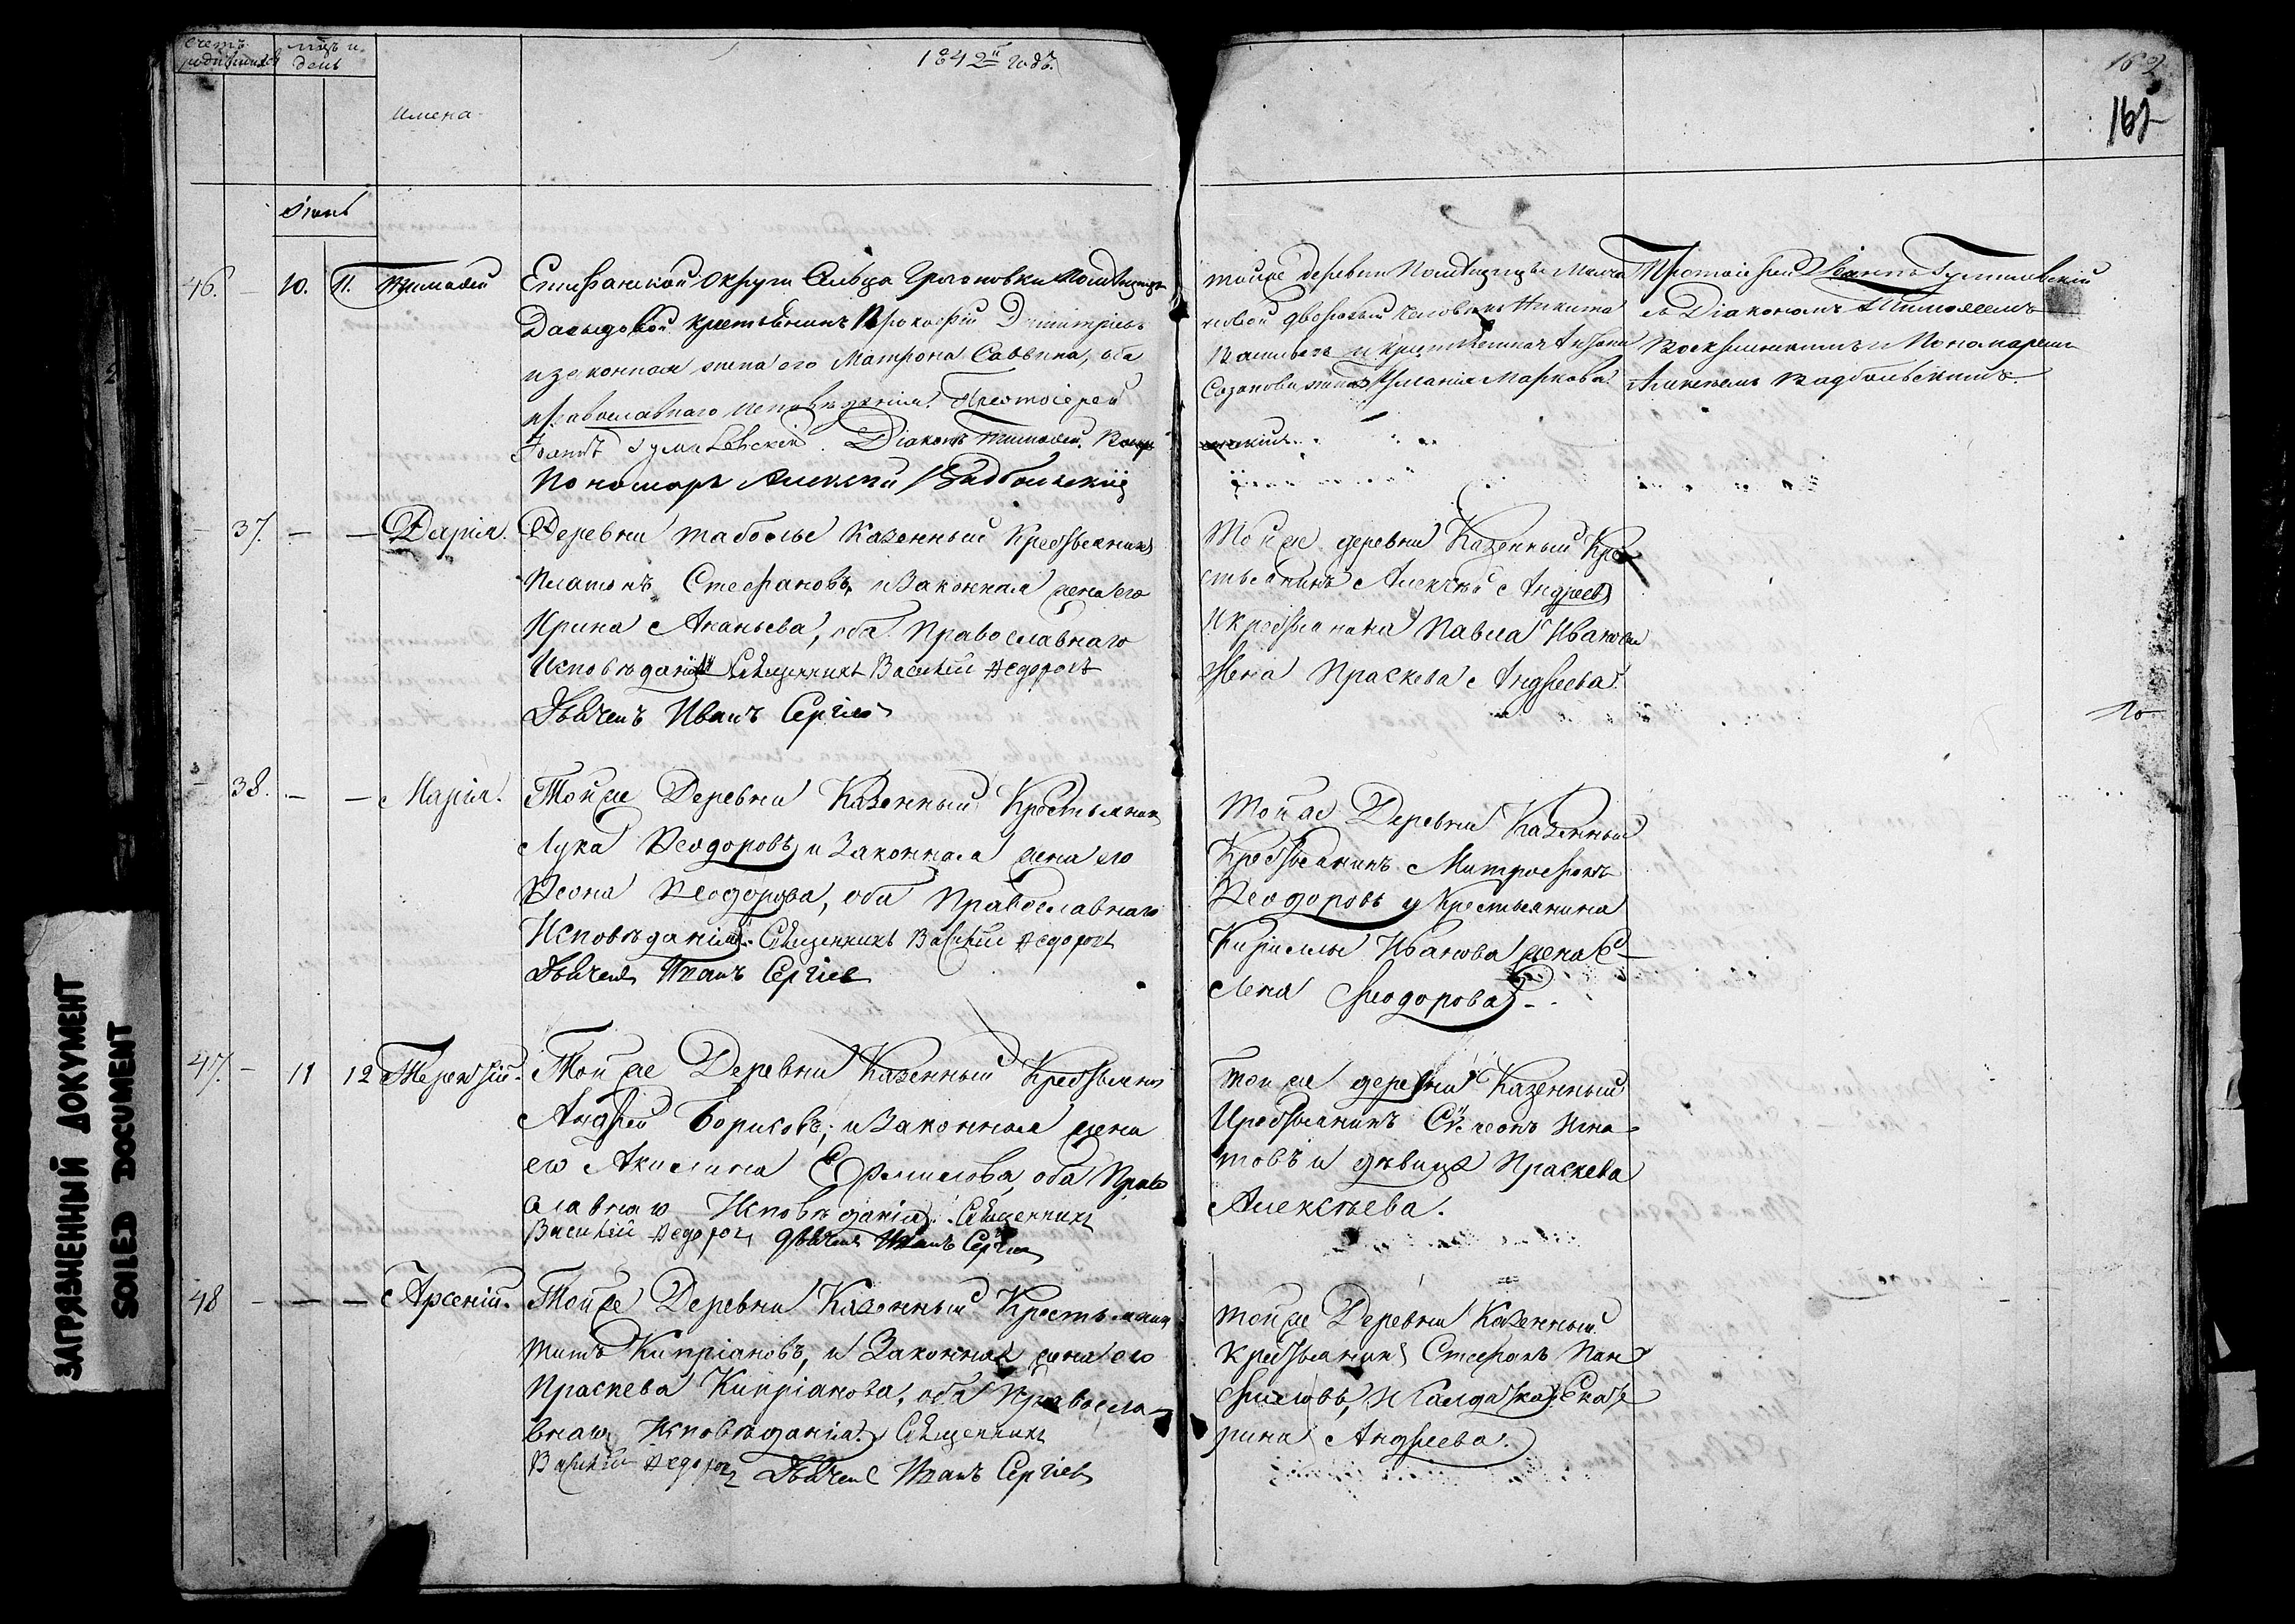 счетъ родившихся
мѣцъ и день
имена
1842й годъ.
162
Іюнь
46. 10. 11. Тимоѳей
Епифанской округи Сельца помѣщицы
Давыдовой крестьянинъ Прокофій Димитріевъ
и законная жена его Матрона Саввина, оба
православнаго исповѣданія. Протоіерей
Іоаннъ Діаконъ Тимоѳей
Пономарь Алексѣй Вадбольскій
тойже деревни Помѣщицы
дворовый человѣкъ Никита
Васильевъ и крестьянина
жена Маркова.
Протоіерей Іоаннъ
съ Діакономъ Тимоѳеемъ
Воскресенскимъ и Пономаремъ
Алексѣемъ Вадбольскимъ.
37. — — Дарія.
Деревни Табольс Казенный Крестьянинъ
Платонъ Стефановъ, и Законная жена его
Ирина Ананьева, оба Православнаго
Исповѣданія Священникъ Василій Ѳедоровъ
Дьячекъ Иванъ Сергіевъ
Тойже деревни Казенный Кре
стьянинъ Алексѣй Андреевъ
и крестьянина Павла Иванова
Жена Праскева Андреева.
38. — — Марія.
Тойже Деревни Казенный Крестьянин
Лука Ѳеодоровъ, и Законная жена его
Ѳеона Ѳеодорова, оба Православнаго
Исповѣданія. Священникъ Василій Ѳедоровъ
Дьячекъ Иванъ Сергіев
Тойже Деревни Казенный
Крестьянинъ Митрофанъ
Ѳеодоровъ и Крестьянина
Кириллы Иванова жена Е
лена Ѳиодорова
47. — 11 12 Терентій.
Тойже Деревни Казенный Крестьянин
Андрей Борисовъ, и Законная жена
его Акилина Ермилова, оба Право
славнаго Исповѣданія. Священникъ
Василій Ѳедоровъ дьячекъ Иванъ Сергіев
Тойже деревни Казенный
Крестьянинъ Сѵмеонъ Игна
товъ и дѣвица Праскева
Алексѣева.
48 — — — Арсеній.
Тойже Деревни Казенный Крестьянин
Титъ Кипріановъ, и Законная жена его
Праскева Кипріанова, оба Правосла
внаго Исповѣданія. Священникъ
Василій Ѳедоровъ Дьячекъ Иванъ Сергіев
Тойже Деревни Казенный
Крестьянинъ Стефанъ Пан
филовъ, и Салдатка Екате
рина Андреева.
ЗАГРЯЗНЕННЫЙ ДОКУМЕНТ
SOILED DOCUMENT